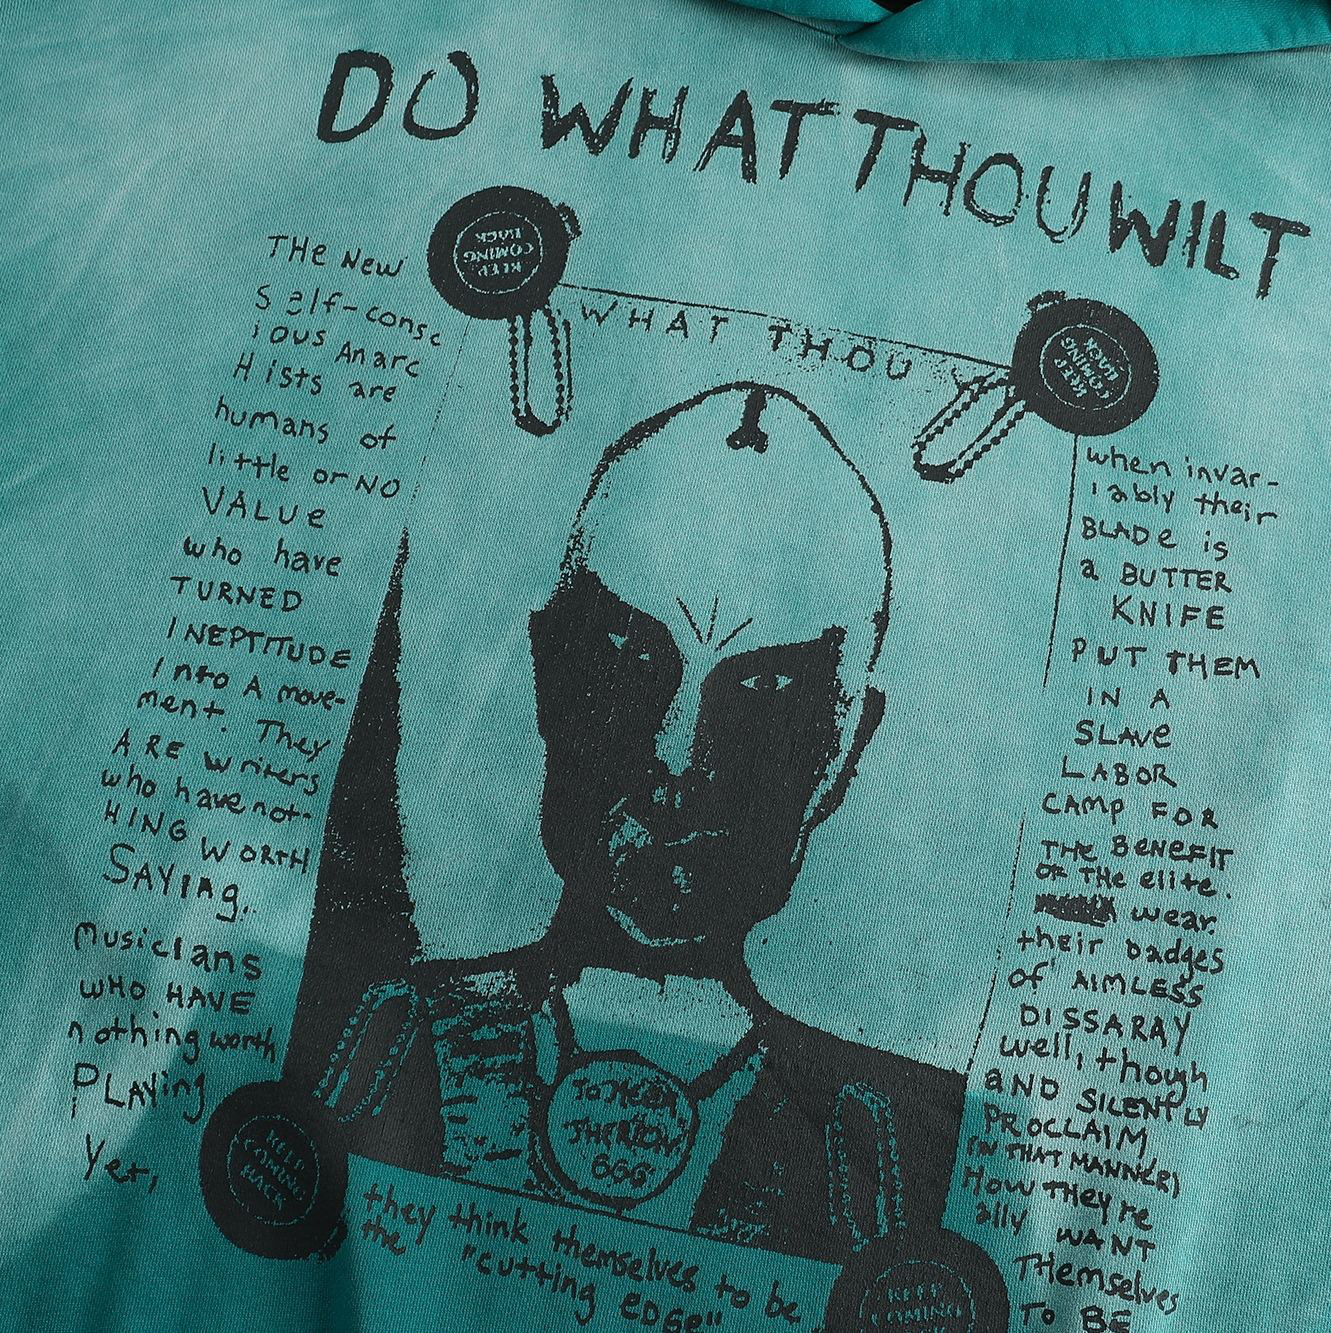 DO WHAT THOU WILT
KEEP
COMING
BACK
WHAT THOU
KEEP
COMING
BACK
THe New
Self-consc
ious Anarc
Hists are
humans of
little or NO
VALUe
who have
TURNED
INEPTITUDE
Into A move-
ment. They
ARE writers
who have not-
HING WORTH
SAYING.
musicians
WHO HAVE
nothing worth
PLAYing
Yet,
KEEP
COMING
BACK
TO MEGA
THERION
666
they think themselves to be
the "cutting EDGe"
when invar-
iably their
BLADe is
a BUTTER
KNIFE
PUT THEM
IN A
SLAVe
LABOR
CAMP FOR
THE BENeFIT
OF THe elite.
wear
their badges
of AIMLESS
DISSARAY
well, though
aND SILENTLY
PROCLAIM
(IN THAT MANNER)
How THey're
ally WANT
THemselves
TO BE
KEEP
COMING